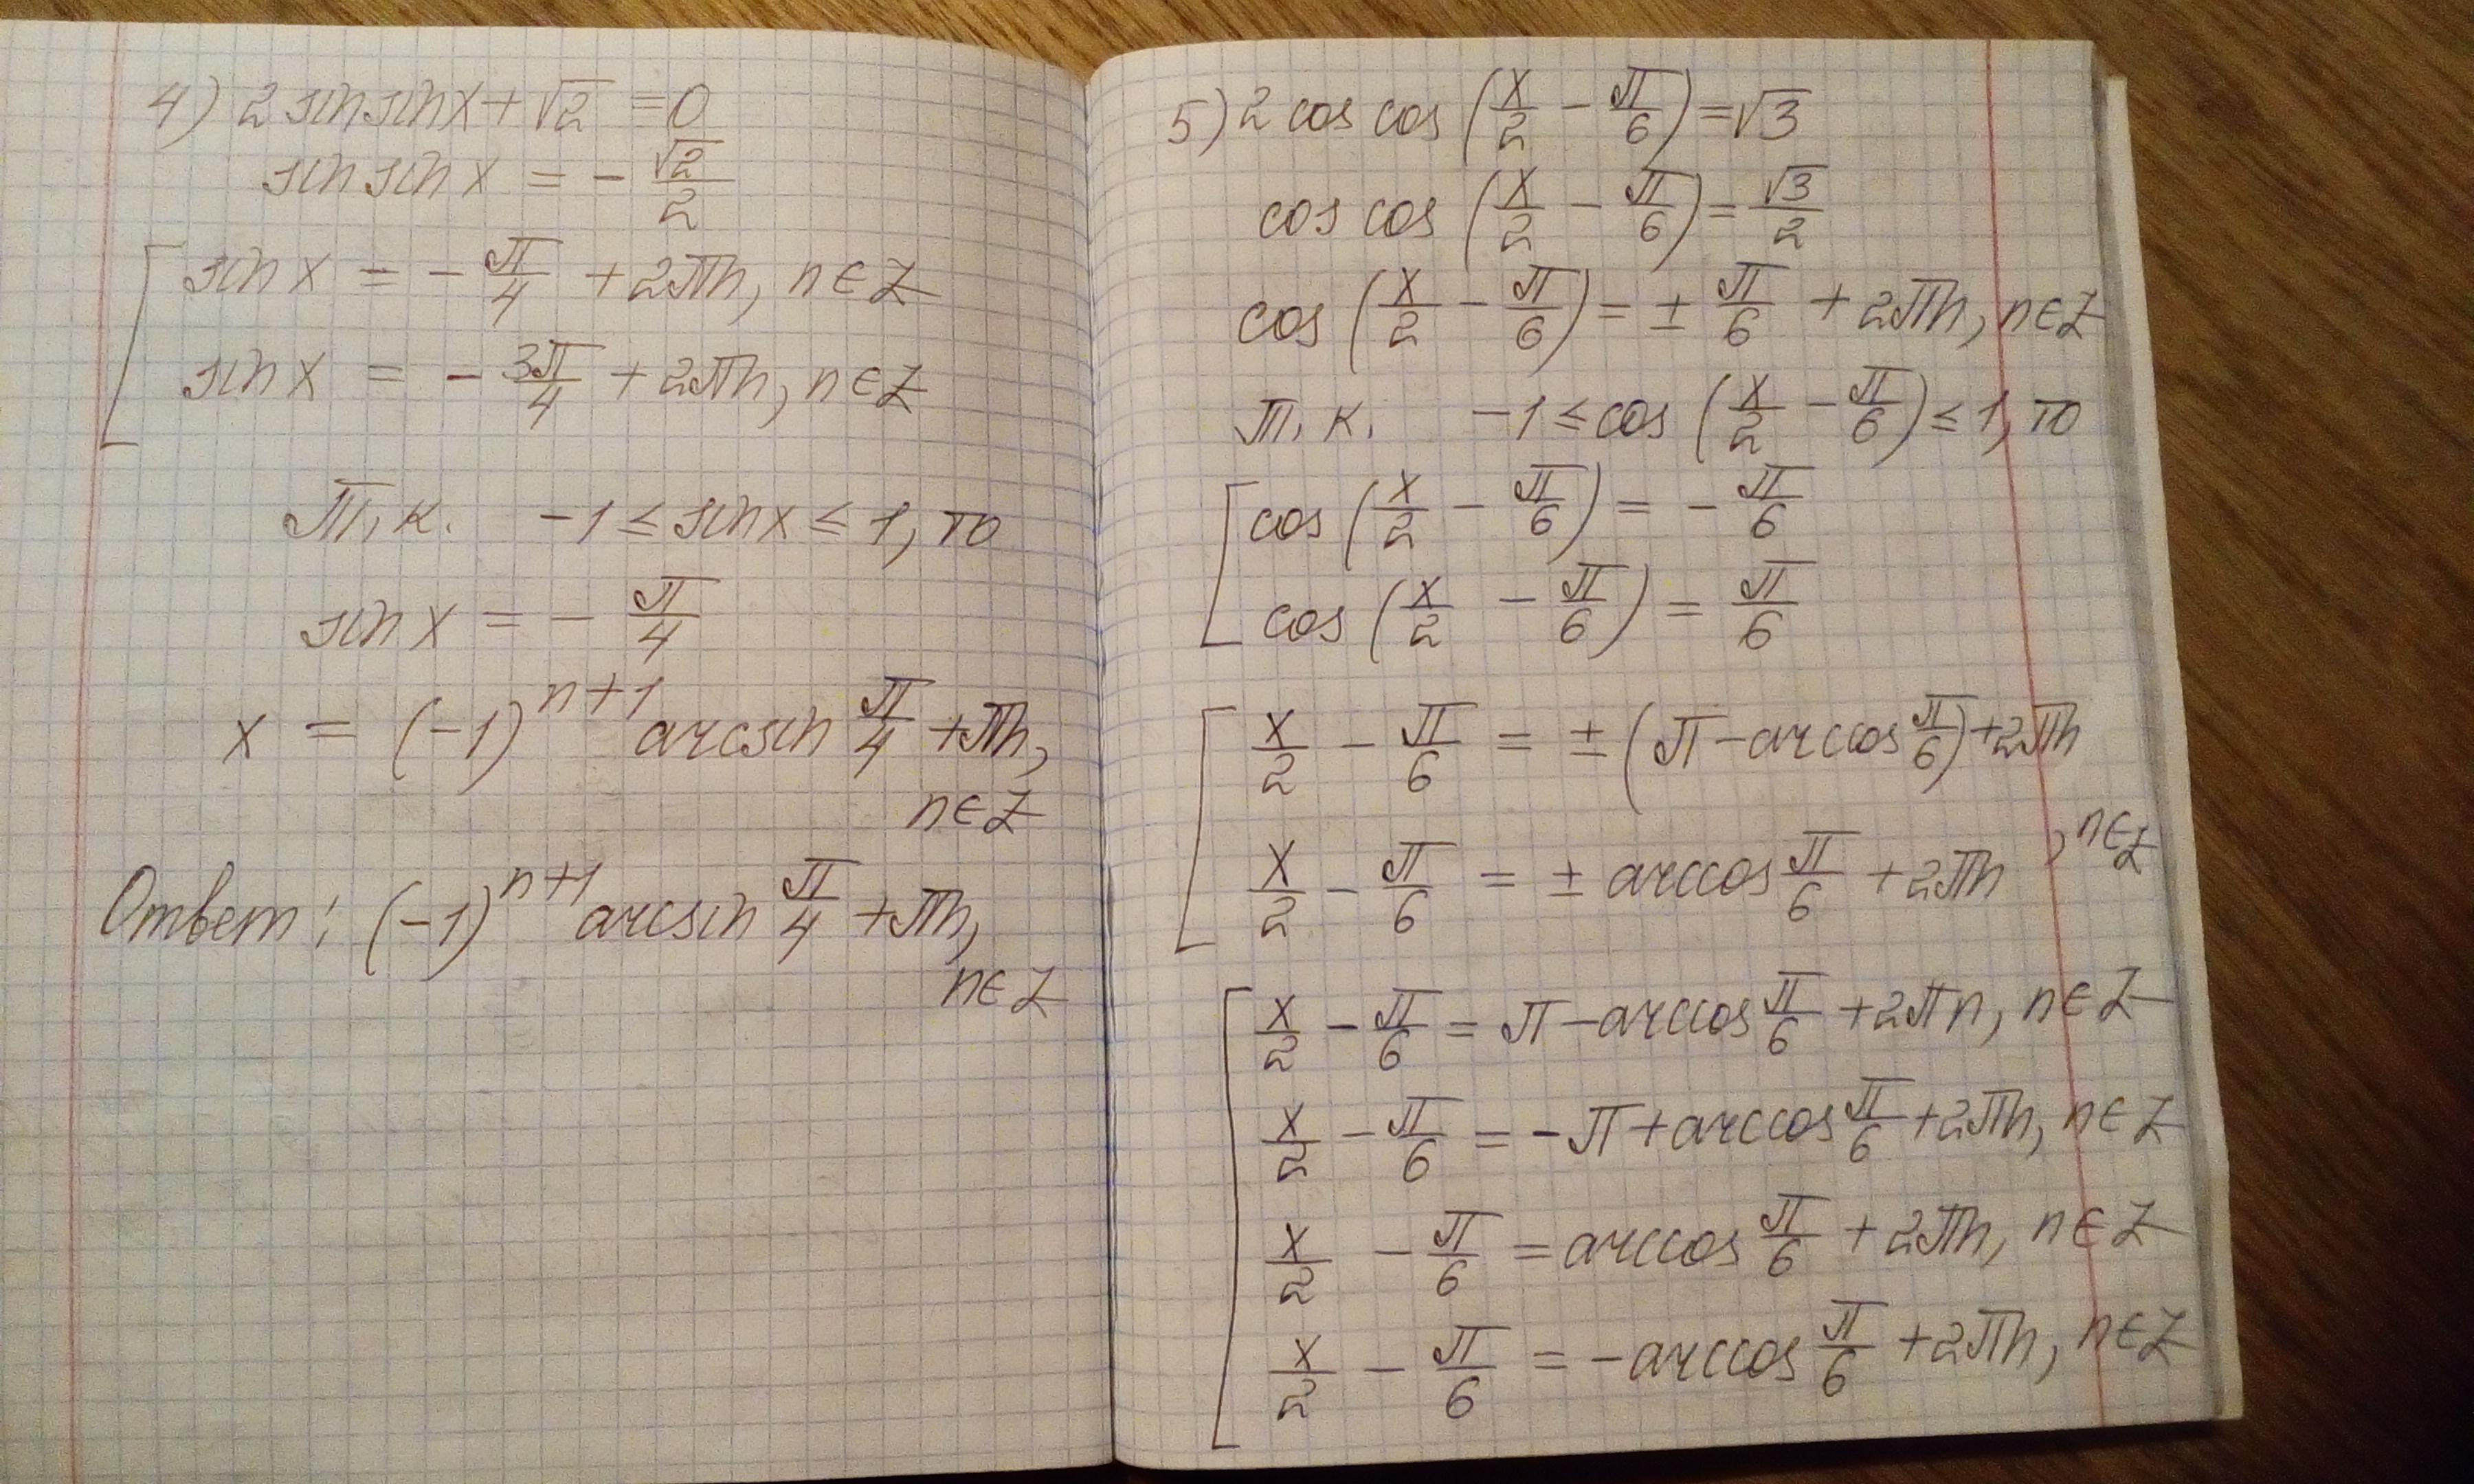 4) 2 sin sin x + √2 = 0
sin sin x = - √2/2
[ sin x = - π/4 + 2πn, n∈Z
sin x = - 3π/4 + 2πn, n∈Z
Т. к. -1 ≤ sin x ≤ 1, то
sin x = - π/4
x = (-1)^(n+1) arcsin π/4 + πn,
n∈Z
Ответ: (-1)^(n+1) arcsin π/4 + πn,
n∈Z
5) 2 cos cos (x/2 - π/6) = √3
cos cos (x/2 - π/6) = √3/2
cos (x/2 - π/6) = ± π/6 + 2πn, n∈Z
Т. к. -1 ≤ cos (x/2 - π/6) ≤ 1, то
[ cos (x/2 - π/6) = - π/6
cos (x/2 - π/6) = π/6
[ x/2 - π/6 = ± (π - arccos π/6) + 2πn
x/2 - π/6 = ± arccos π/6 + 2πn , n∈Z
[ x/2 - π/6 = π - arccos π/6 + 2πn, n∈Z
x/2 - π/6 = - π + arccos π/6 + 2πn, n∈Z
x/2 - π/6 = arccos π/6 + 2πn, n∈Z
x/2 - π/6 = - arccos π/6 + 2πn, n∈Z